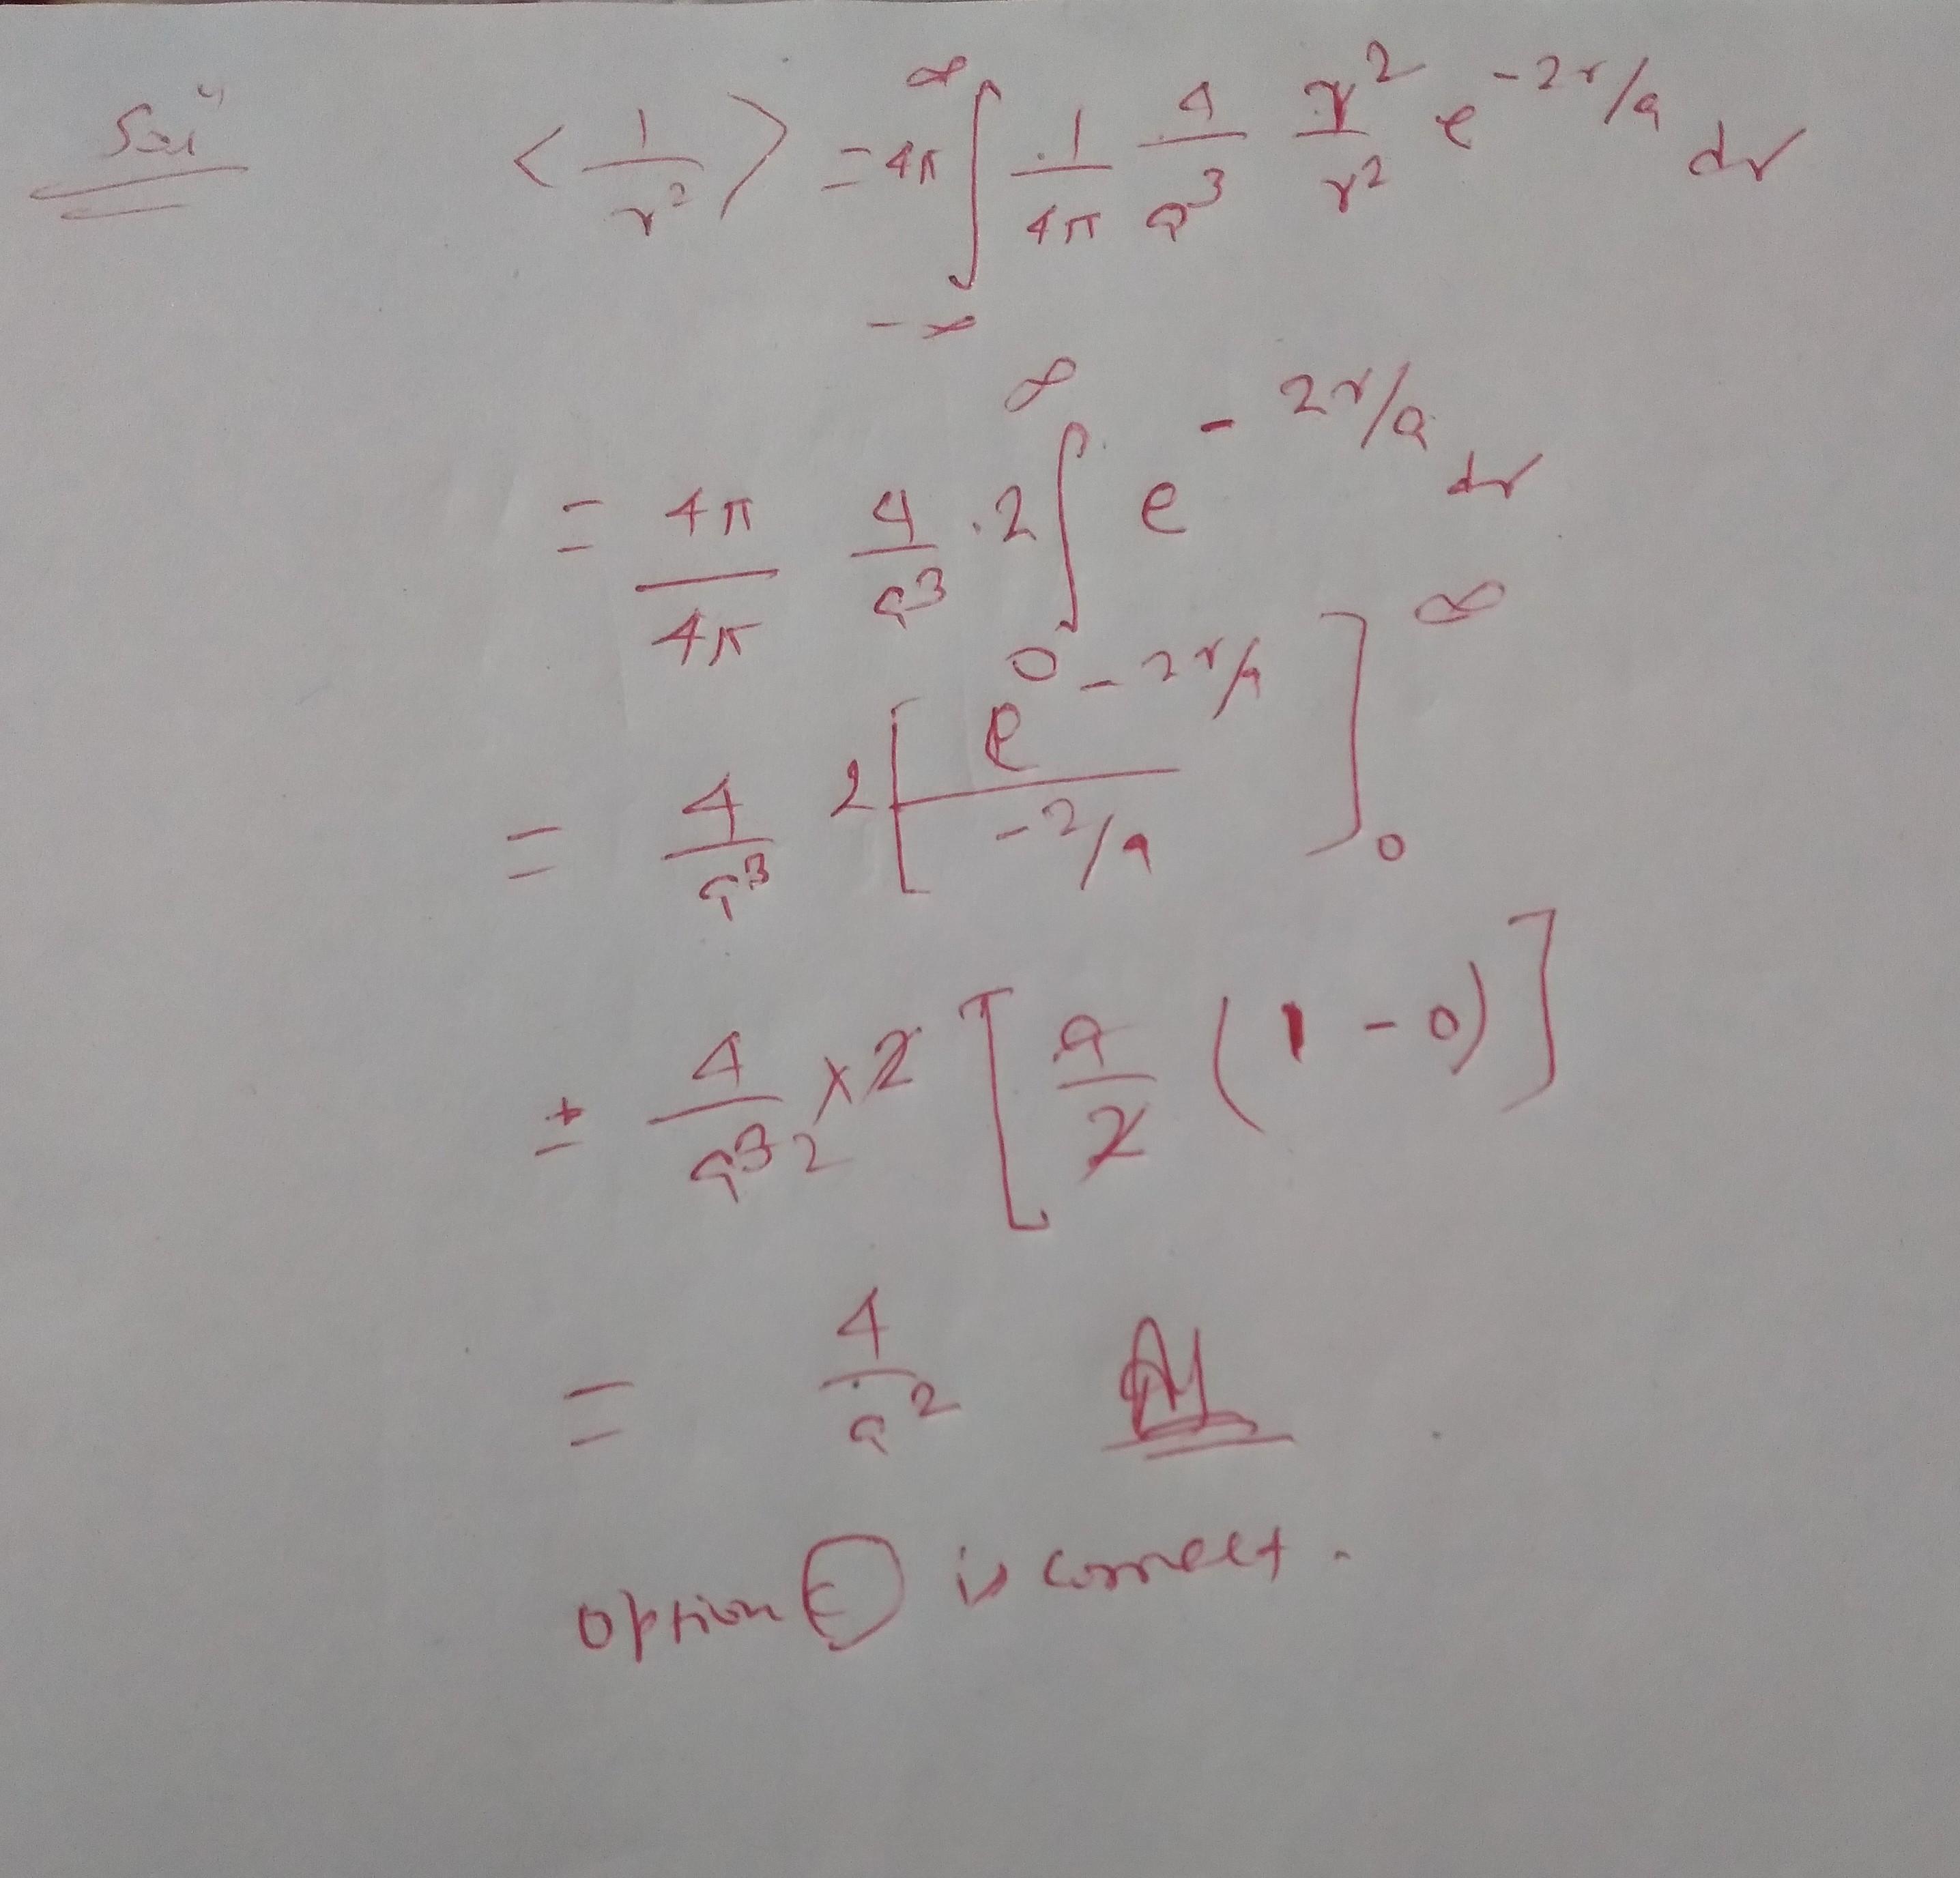 Sol" <1/r²> = 4π ∫_{-∞}^{∞} 1/4π 4/a³ r²/r² e^{-2r/a} dr
= 4π/4π 4/a³ . 2 ∫_0^∞ e^{-2r/a} dr
= 4/a³ 2 [e^{-2r/a} / -2/a]_0^∞
= 4/a³ 2 × 2 [a/2 (1 - 0)]
= 4/a²
option C is correct.